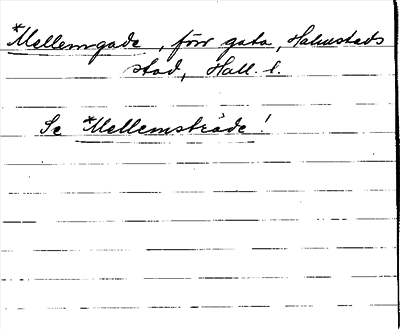 *Mellemgade, förr gata, Halmstads
stad, Hall. l.
Se *Mellemsträde!